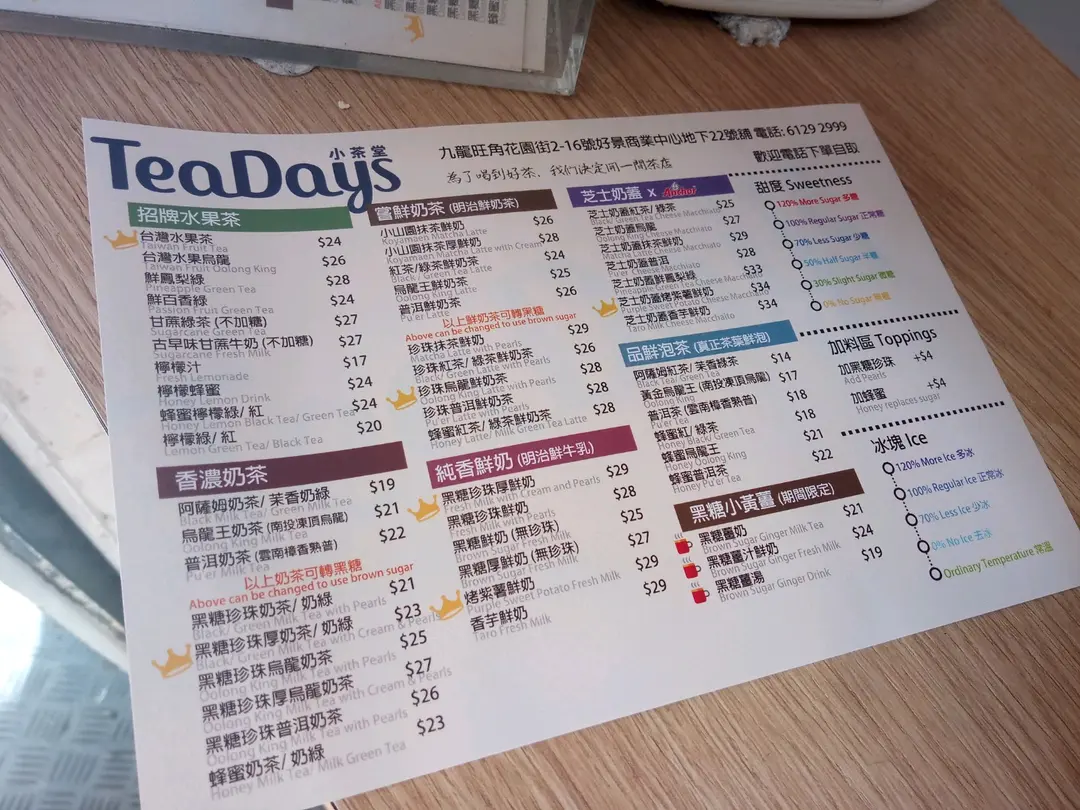 TeaDays
小茶堂
九龍旺角花園街2-16號好景商業中心地下22號舖 電話: 6129 2999
為了喝到好茶，我們決定開一間茶店
歡迎電話下單自取
招牌水果茶
台灣水果茶 $24
Taiwan Fruit Tea
台灣水果烏龍 $26
Taiwan Fruit Oolong King
鮮鳳梨綠 $28
Pineapple Green Tea
鮮百香綠 $24
Passion Fruit Green Tea
甘蔗綠茶 (不加糖) $27
Sugarcane Green Tea
古早味甘蔗牛奶 (不加糖) $27
Sugarcane Fresh Milk
檸檬汁 $17
Fresh Lemonade
檸檬蜂蜜 $24
Honey Lemon Drink
蜂蜜檸檬綠/ 紅 $24
Honey Lemon Black Tea/ Green Tea
檸檬綠/ 紅 $20
Lemon Green Tea/ Black Tea
香濃奶茶
阿薩姆奶茶/ 茉香奶綠 $19
Black Milk Tea/ Green Milk Tea
烏龍王奶茶 (南投凍頂烏龍) $21
Oolong King Milk Tea
普洱奶茶 (雲南樟香熟普) $22
Pu'er Milk Tea
以上奶茶可轉黑糖
Above can be changed to use brown sugar
黑糖珍珠奶茶/ 奶綠 $21
Black/ Green Milk Tea with Pearls
黑糖珍珠厚奶茶/ 奶綠 $23
Black/ Green Milk Tea with Cream & Pearls
黑糖珍珠烏龍奶茶 $25
Oolong King Milk Tea with Pearls
黑糖珍珠厚烏龍奶茶 $27
Oolong King Milk Tea with Cream & Pearls
黑糖珍珠普洱奶茶 $26
Oolong King Milk Tea with Pearls
蜂蜜奶茶/ 奶綠 $23
Honey Milk Tea/ Milk Green Tea
嘗鮮奶茶 (明治鮮奶茶)
小山園抹茶鮮奶 $26
Koyamaen Matcha Latte
小山園抹茶厚鮮奶 $28
Koyamaen Matcha Latte with Cream
紅茶/綠茶鮮奶茶 $24
Black/ Green Tea Latte
烏龍王鮮奶茶 $25
Oolong King Latte
普洱鮮奶茶 $26
Pu'er Latte
以上鮮奶茶可轉黑糖
Above can be changed to use brown sugar
珍珠抹茶鮮奶 $29
Matcha Latte with Pearls
珍珠紅茶/ 綠茶鮮奶茶 $26
Black/ Green Latte with Pearls
珍珠烏龍鮮奶茶 $28
Oolong King Latte with Pearls
珍珠普洱鮮奶茶 $28
Pu'er Latte with Pearls
蜂蜜紅茶/ 綠茶鮮奶茶 $28
Honey Latte/ Milk Green Tea Latte
純香鮮奶 (明治鮮牛乳)
黑糖珍珠厚鮮奶 $29
Fresh Milk with Cream and Pearls
黑糖珍珠鮮奶 $28
Fresh Milk with Pearls
黑糖鮮奶 (無珍珠) $25
Brown Sugar Fresh Milk
黑糖厚鮮奶 (無珍珠) $27
Brown Sugar Fresh Milk
烤紫薯鮮奶 $29
Purple Sweet Potato Fresh Milk
香芋鮮奶 $29
Taro Fresh Milk
芝士奶蓋 x Anchor
芝士奶蓋紅茶/ 綠茶 $25
Black/ Green Tea Cheese Macchiato
芝士奶蓋烏龍 $27
Oolong King Cheese Macchiato
芝士奶蓋抹茶鮮奶 $29
Matcha Latte Cheese Macchiato
芝士奶蓋普洱 $28
Pu'er Cheese Macchiato
芝士奶蓋鮮鳳梨綠 $33
Pineapple Green Tea Cheese Macchiato
芝士奶蓋烤紫薯鮮奶 $34
Purple Sweet Potato Cheese Macchiato
芝士奶蓋香芋鮮奶 $34
Taro Milk Cheese Macchaito
品鮮泡茶 (真正茶葉鮮泡)
阿薩姆紅茶/ 茉香綠茶 $14
Black Tea/ Green Tea
黃金烏龍王 (南投凍頂烏龍) $17
Oolong King
普洱茶 (雲南樟香熟普) $18
Pu'er Tea
蜂蜜紅/ 綠茶 $18
Honey Black/ Green Tea
蜂蜜烏龍王 $21
Honey Oolong King
蜂蜜普洱茶 $22
Honey Pu'er Tea
黑糖小黃薑 (期間限定)
黑糖薑奶 $21
Brown Sugar Ginger Milk Tea
黑糖薑汁鮮奶 $24
Brown Sugar Ginger Fresh Milk
黑糖薑湯 $19
Brown Sugar Ginger Drink
甜度 Sweetness
120% More Sugar 多糖
100% Regular Sugar 正常糖
70% Less Sugar 少糖
50% Half Sugar 半糖
30% Slight Sugar 微糖
0% No Sugar 無糖
加料區 Toppings
加黑糖珍珠 +$4
Add Pearls
加蜂蜜 +$4
Honey replaces sugar
冰塊 Ice
120% More Ice 多冰
100% Regular Ice 正常冰
70% Less Ice 少冰
0% No Ice 去冰
Ordinary Temperature 常溫